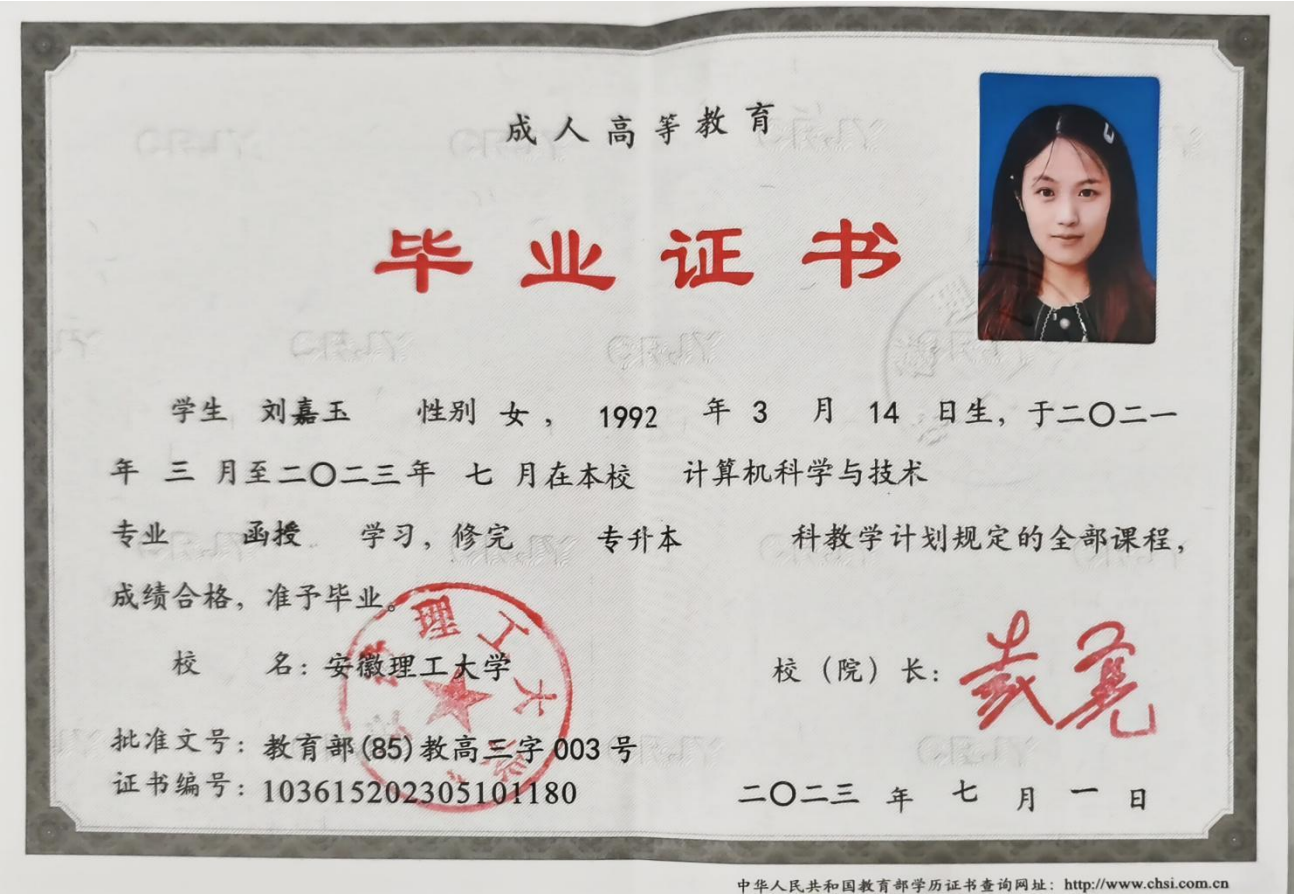 成人高等教育
毕业证书
学生 刘嘉玉 性别 女， 1992 年 3 月 14 日生，于二〇二一
年 三 月至二〇二三年 七 月在本校 计算机科学与技术
专业 函授 学习，修完 专升本 科教学计划规定的全部课程，
成绩合格，准予毕业。
校 名：安徽理工大学
校（院）长：
批准文号：教育部(85)教高三字003号
证书编号：103615202305101180
二〇二三 年 七 月 一 日
中华人民共和国教育部学历证书查询网址：http://www.chsi.com.cn